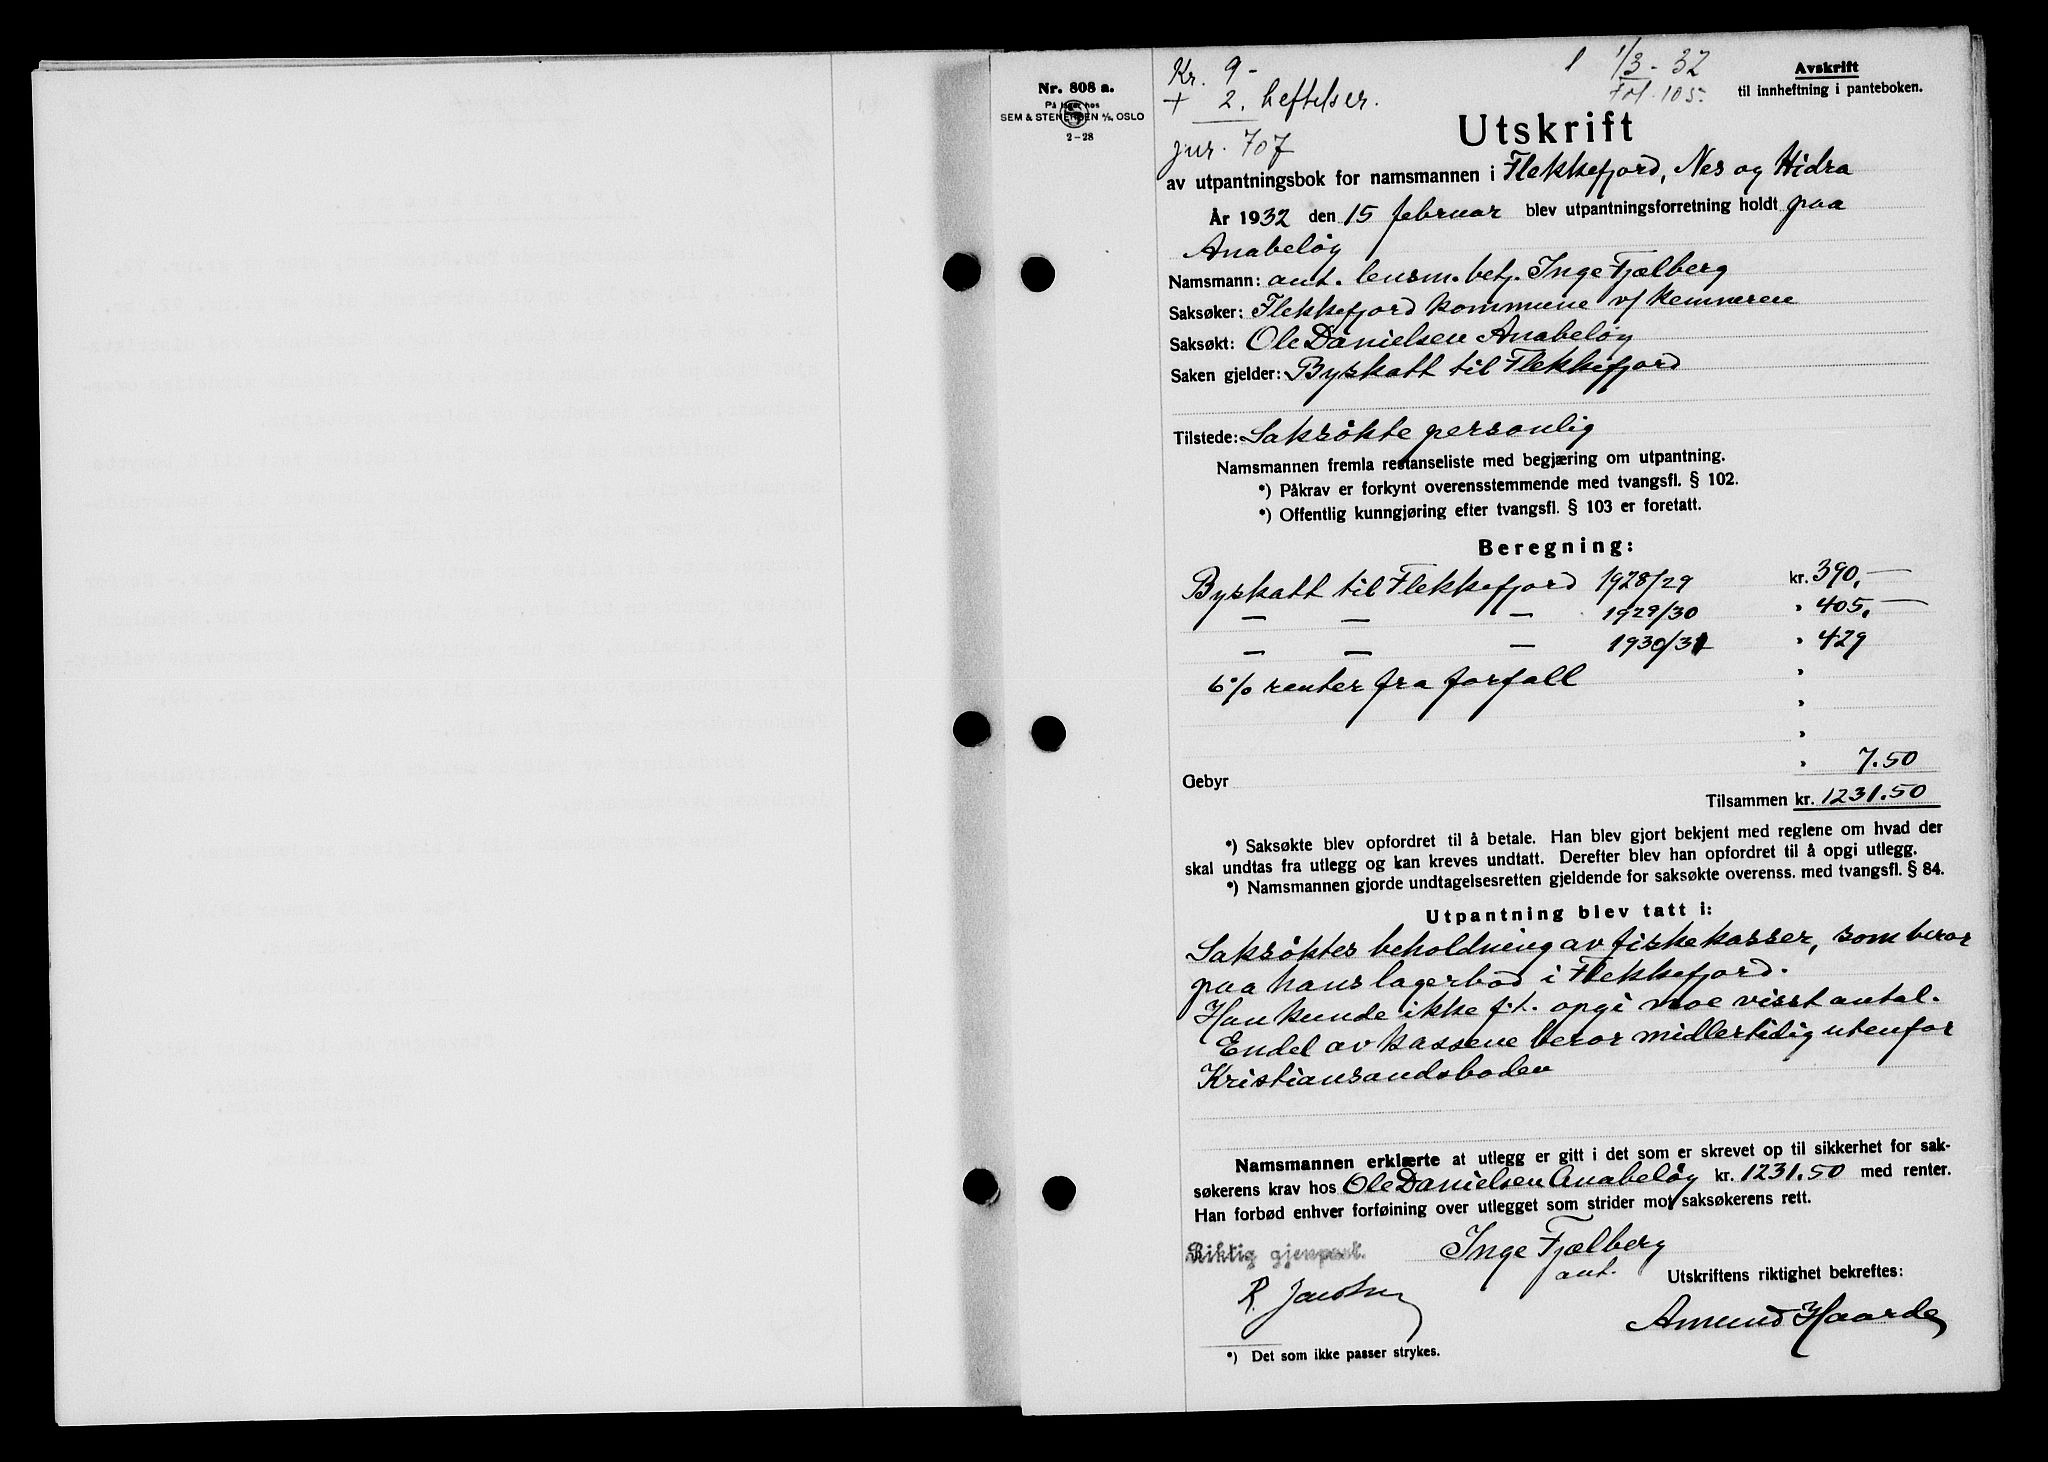 Nr. 808 a.
På lager hos
SEM & STENERSEN A/S, OSLO
2-28
Kr. 9-
+ 2. heftelser.
jnr. 707
1/3-32
Fol. 105.
Avskrift
til innheftning i panteboken.
Utskrift
av utpantningsbok for namsmannen i Flekkefjord, Nes og Hidra
År 1932 den 15 februar blev utpantningsforretning holdt paa
Anabeløy
Namsmann: aut. lensm. betj. Inge Fjælberg
Saksøker: Flekkefjord kommune v/ kemneren
Saksøkt: Ole Danielsen Anabeløy
Saken gjelder: Byskatt til Flekkefjord
Tilstede: Saksøkte personlig
Namsmannen fremla restanseliste med begjæring om utpantning.
*) Påkrav er forkynt overensstemmende med tvangsfl. § 102.
*) Offentlig kunngjøring efter tvangsfl. § 103 er foretatt.
Beregning:
Byskatt til Flekkefjord 1928/29 kr. 390,—
— — — 1929/30 " 405,—
— — — 1930/31 " 429
6% renter fra forfall "
"
"
Gebyr " 7.50
Tilsammen kr. 1231.50
*) Saksøkte blev opfordret til å betale. Han blev gjort bekjent med reglene om hvad der
skal undtas fra utlegg og kan kreves undtatt. Derefter blev han opfordret til å opgi utlegg.
*) Namsmannen gjorde undtagelsesretten gjeldende for saksøkte overenss. med tvangsfl. § 84.
Utpantning blev tatt i:
Saksøktes beholdning av fiskekasser, som beror
paa hans lagerbod i Flekkefjord.
Han kunde ikke f.t. opgi noe visst antal.
Endel av kassene beror midlertidig utenfor
Kristiansandsboden
Namsmannen erklærte at utlegg er gitt i det som er skrevet op til sikkerhet for sak-
søkerens krav hos Ole Danielsen Anabeløy kr. 1231.50 med renter.
Han forbød enhver forføining over utlegget som strider mot saksøkerens rett.
Riktig gjenpart.
Inge Fjælberg
aut.
Utskriftens riktighet bekreftes:
R. Jacobsen
Amund Haarde
*) Det som ikke passer strykes.